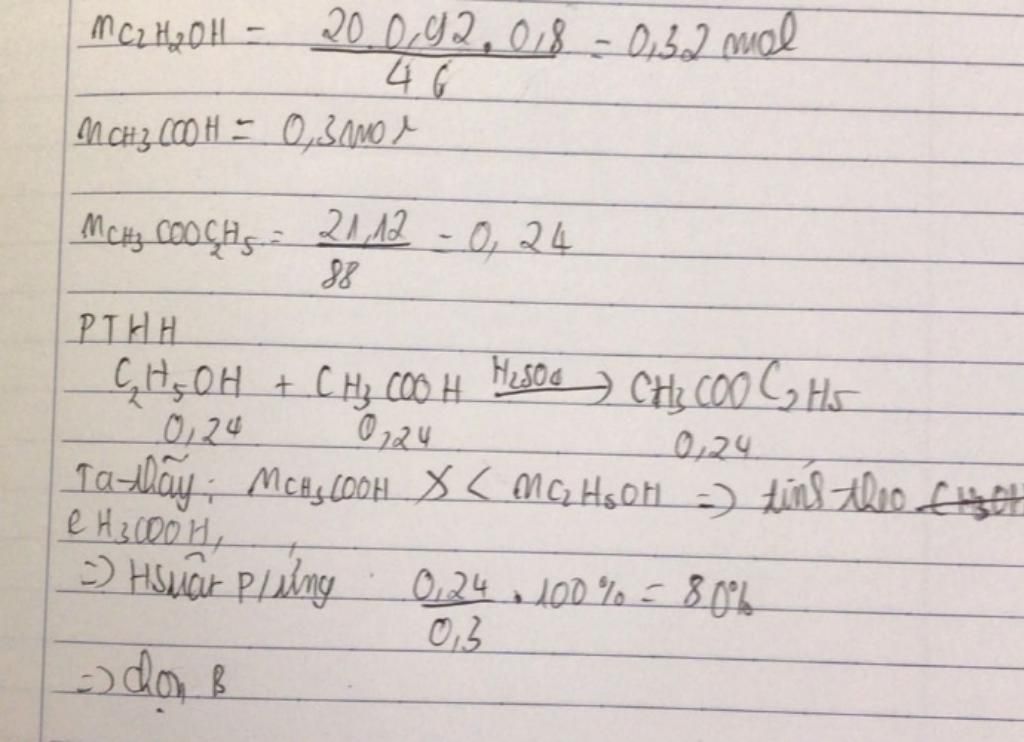 nC2H2OH = 20.0,92.0,8 / 46 = 0,32 mol
nCH3COOH = 0,3mol
nCH3COOC2H5 = 21,12 / 88 = 0,24
PTHH
C2H5OH + CH3COOH H2SO4 → CH3COOC2H5
0,24 0,24 0,24
Ta thấy: nCH3COOH < nC2H5OH => tính theo
CH3COOH,
=> Hsuất p/ứng 0,24 / 0,3 . 100% = 80%
=> chọn B